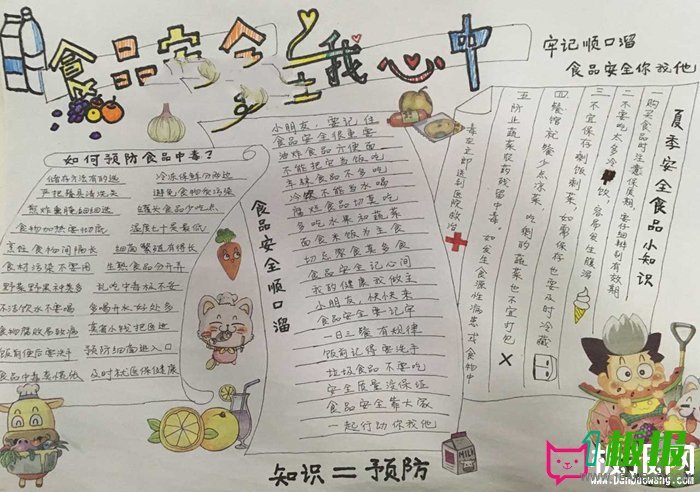 食品安全在我心中
牢记顺口溜
食品安全你我他
如何预防食品中毒？
冷冻保鲜分场进
严把餐具清洗关
避免食物受污染
煎炸熏腌细细选
罐头食品少吃点
食物加热要彻底
温度七十是最低
烹饪食物间隔长
细菌繁殖有得长
食材污染不要用
生熟食品分开弄
野菜野果种类多
乱吃中毒放不妥
不洁饮水不要喝
多喝开水好处多
食物腐败易致病
饭前便后要洗手
预防细菌进入口
食品中毒莫慌张
及时就医保健康
食品安全顺口溜
小朋友，要记住
食品安全很重要
油炸食品方便面
不能把它当饭吃
冷饮不能当水喝
腐烂食品切莫吃
多吃水果和蔬菜
面食米饭为主食
切忌零食莫多食
食品安全记心间
我的健康我做主
小朋友，快快来
食品安全要记牢
一日三餐有规律
饭前记得要洗手
垃圾食品不要吃
安全质量没保证
食品安全靠大家
一起行动你我他
夏季安全食品小知识
一 购买食品时注意保质期，要仔细辨别有效期
二 不要吃太多冷饮，容易发生腹泻
三 不宜保存剩饭剩菜，如需保存也要及时冷藏
四 餐馆就餐少点凉菜，吃剩的蔬菜也不宜打包
五 防止蔬菜农药残留中毒，如发生食源性疾患或食物中
毒应立即送到医院救治
MILK
知识＝预防
板报网
www.banbaowang.com